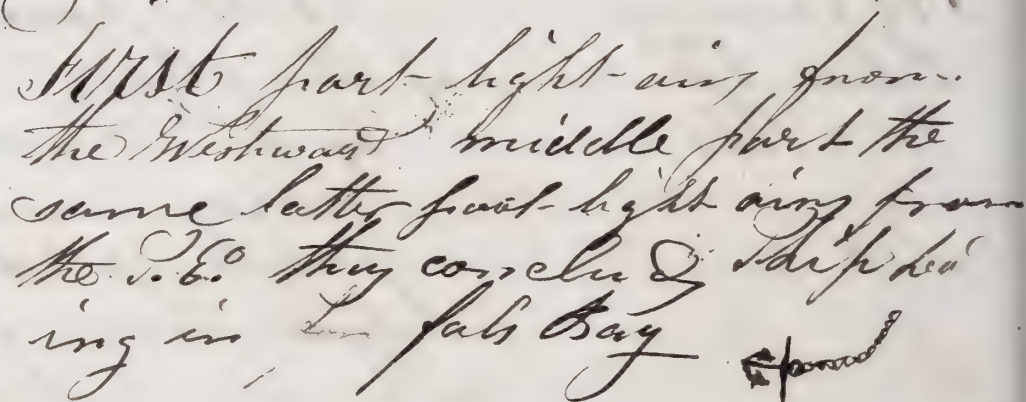 First part light airs from
the Westward middle part the
same latter part light airs from
the S.Eo thus concluds Ship
ing in fals Bay